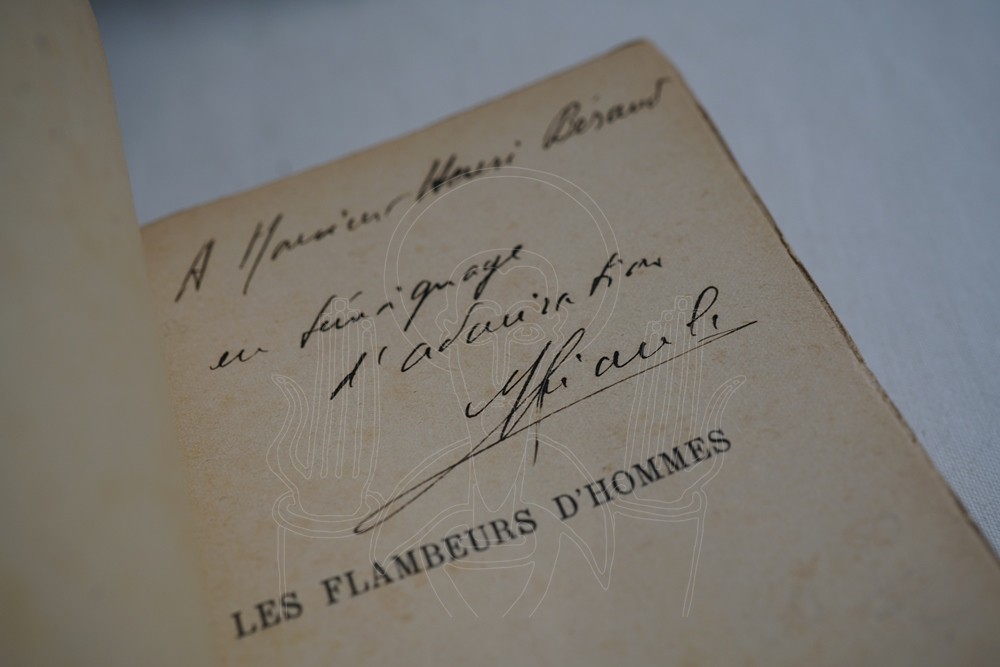 A Monsieur Henri Béraud
en témoignage
d'admiration
MGriaule
LES FLAMBEURS D'HOMMES